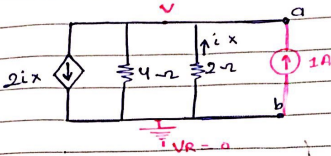 V
a
ix
2ix
4Ω
2Ω
1A
b
VR = 0